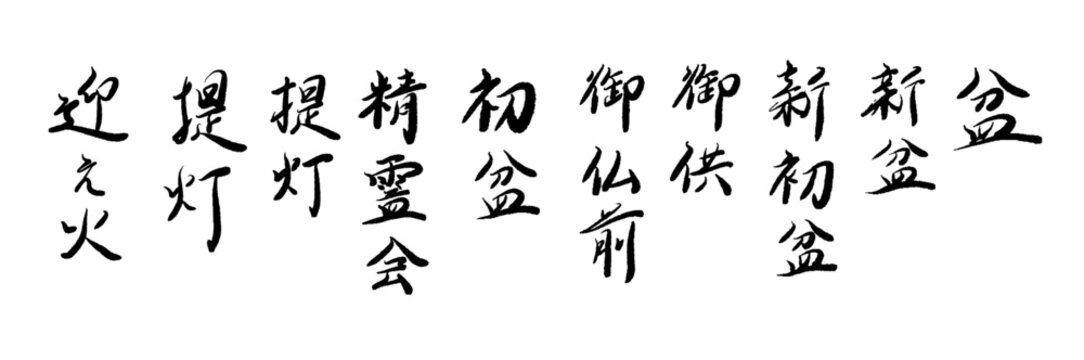 盆
新盆
新初盆
御供
御仏前
初盆
精霊会
提灯
提灯
迎え火